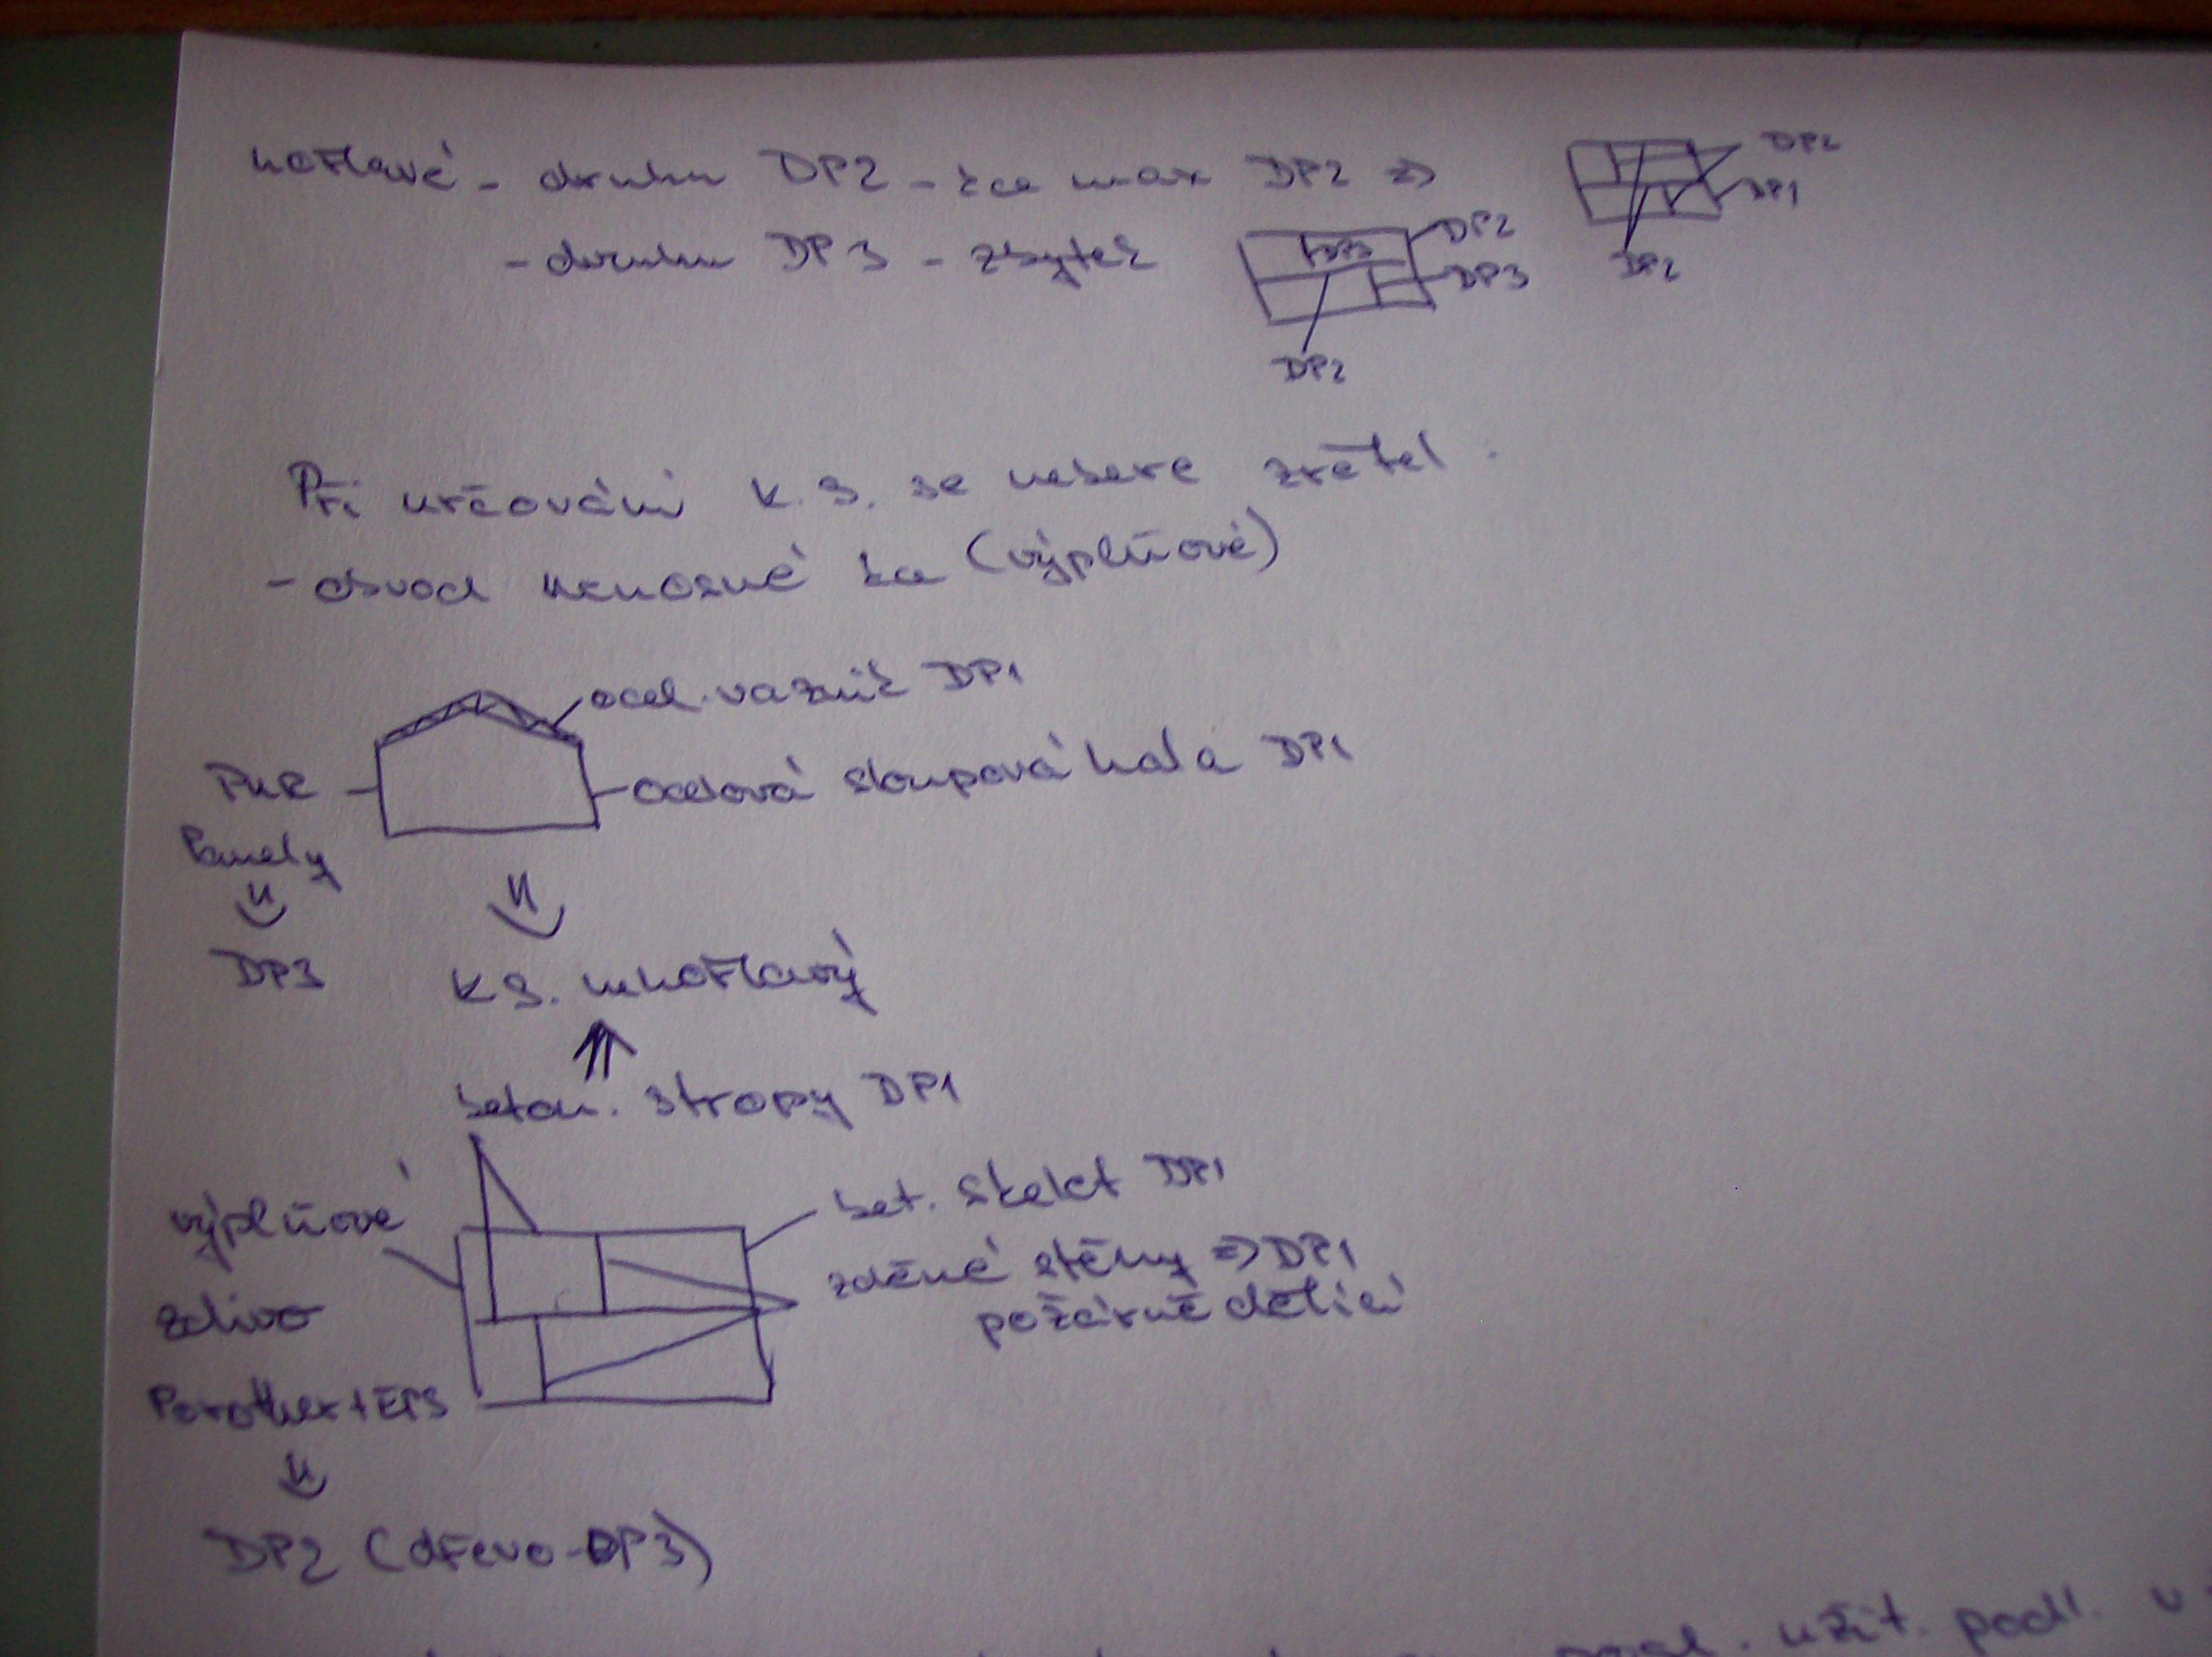 hořlavé - druhu DP2 - kce max DP2 ⇒
DP2
DP1
DP2
- druhu DP3 - zbytek
DP3
DP2
DP3
DP2
Při určování k.s. se nebere zřetel
- obvod nenosné kce (výplňové)
ocel. vazník DP1
ocelová sloupová hala DP1
PUR
Panely
⇓
DP3
⇓
K.S. nehořlavý
⇑
beton. stropy DP1
bet. skelet DP1
zděné stěny ⇒ DP1
požárně dělící
výplňové
zdivo
Porother + EPS
⇓
DP2 (dřevo-DP3)
užit. podl. v